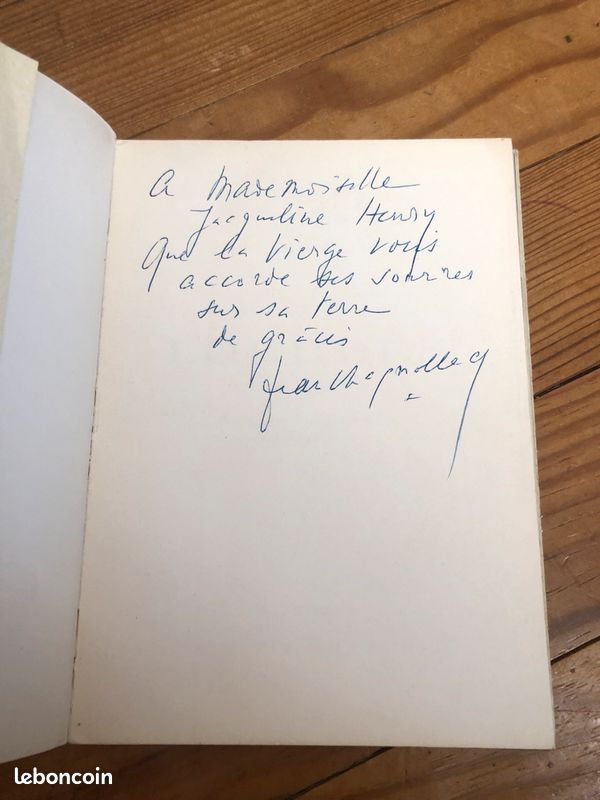 A Mademoiselle
Jacqueline Henry
Que la Vierge vous
accorde ses sourires
sur sa terre
de grâces
Jean Chagnolleau
leboncoin